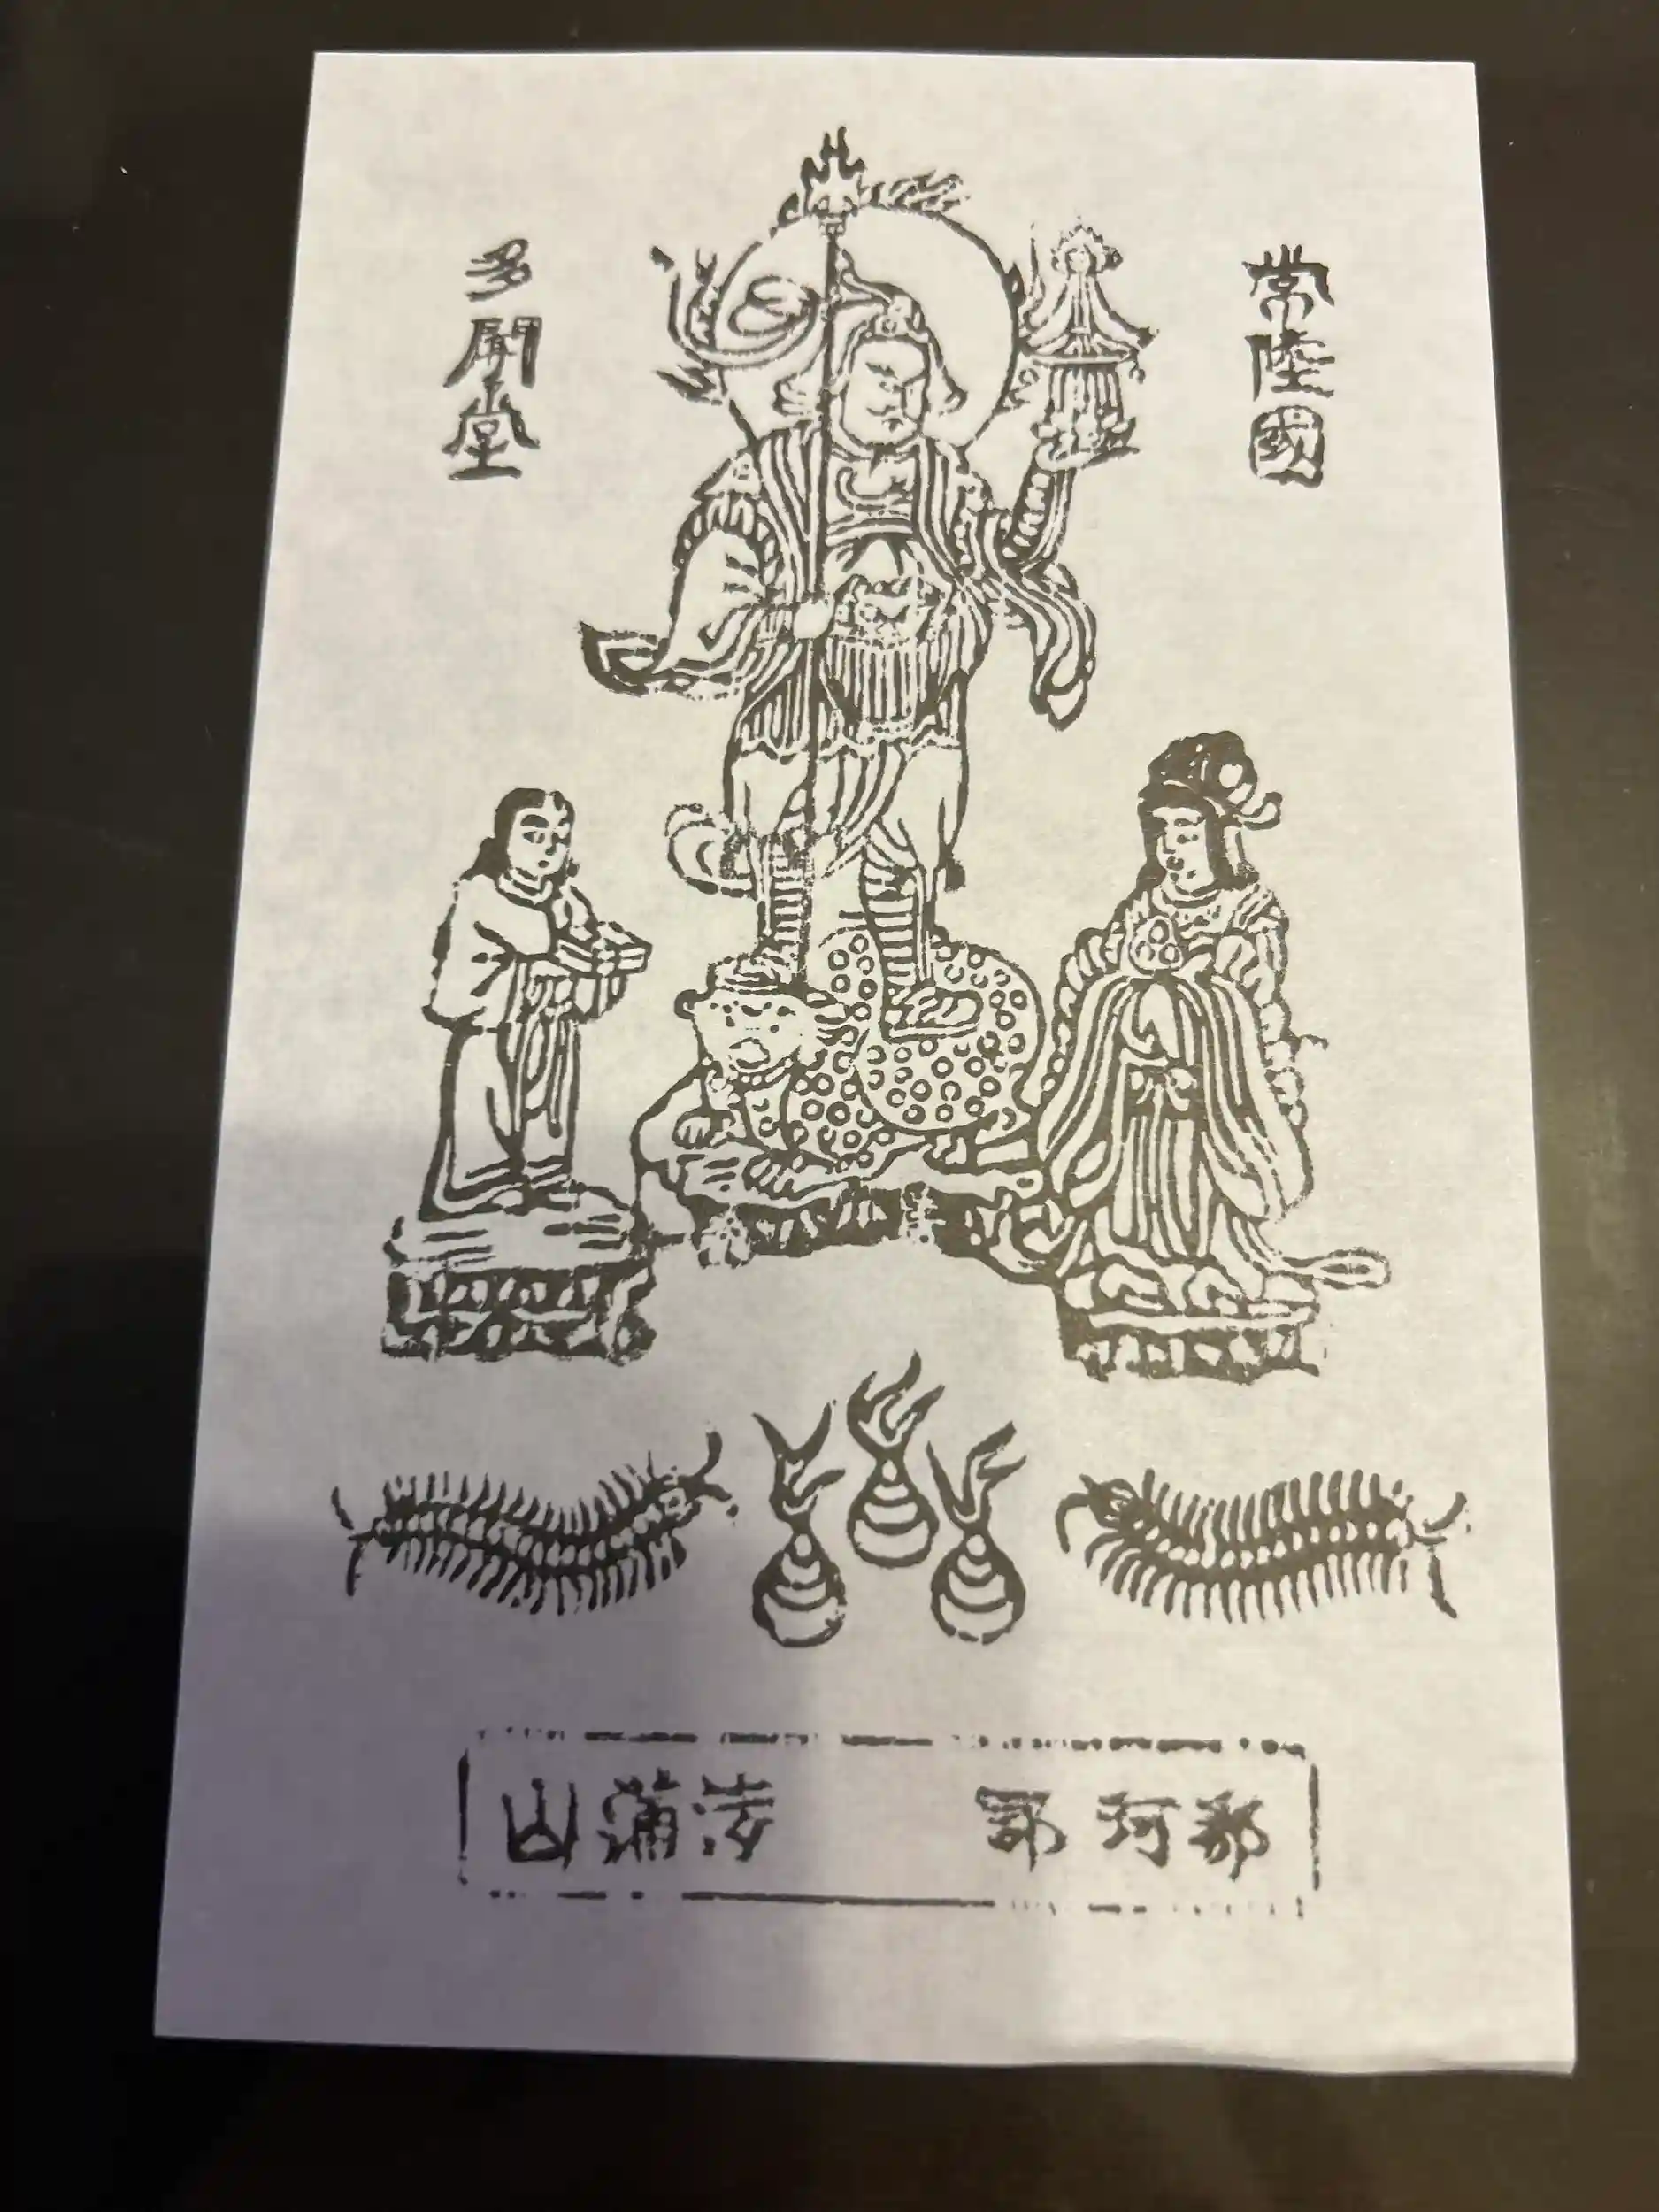 常陸國
多聞堂
那珂郡 法蒲山